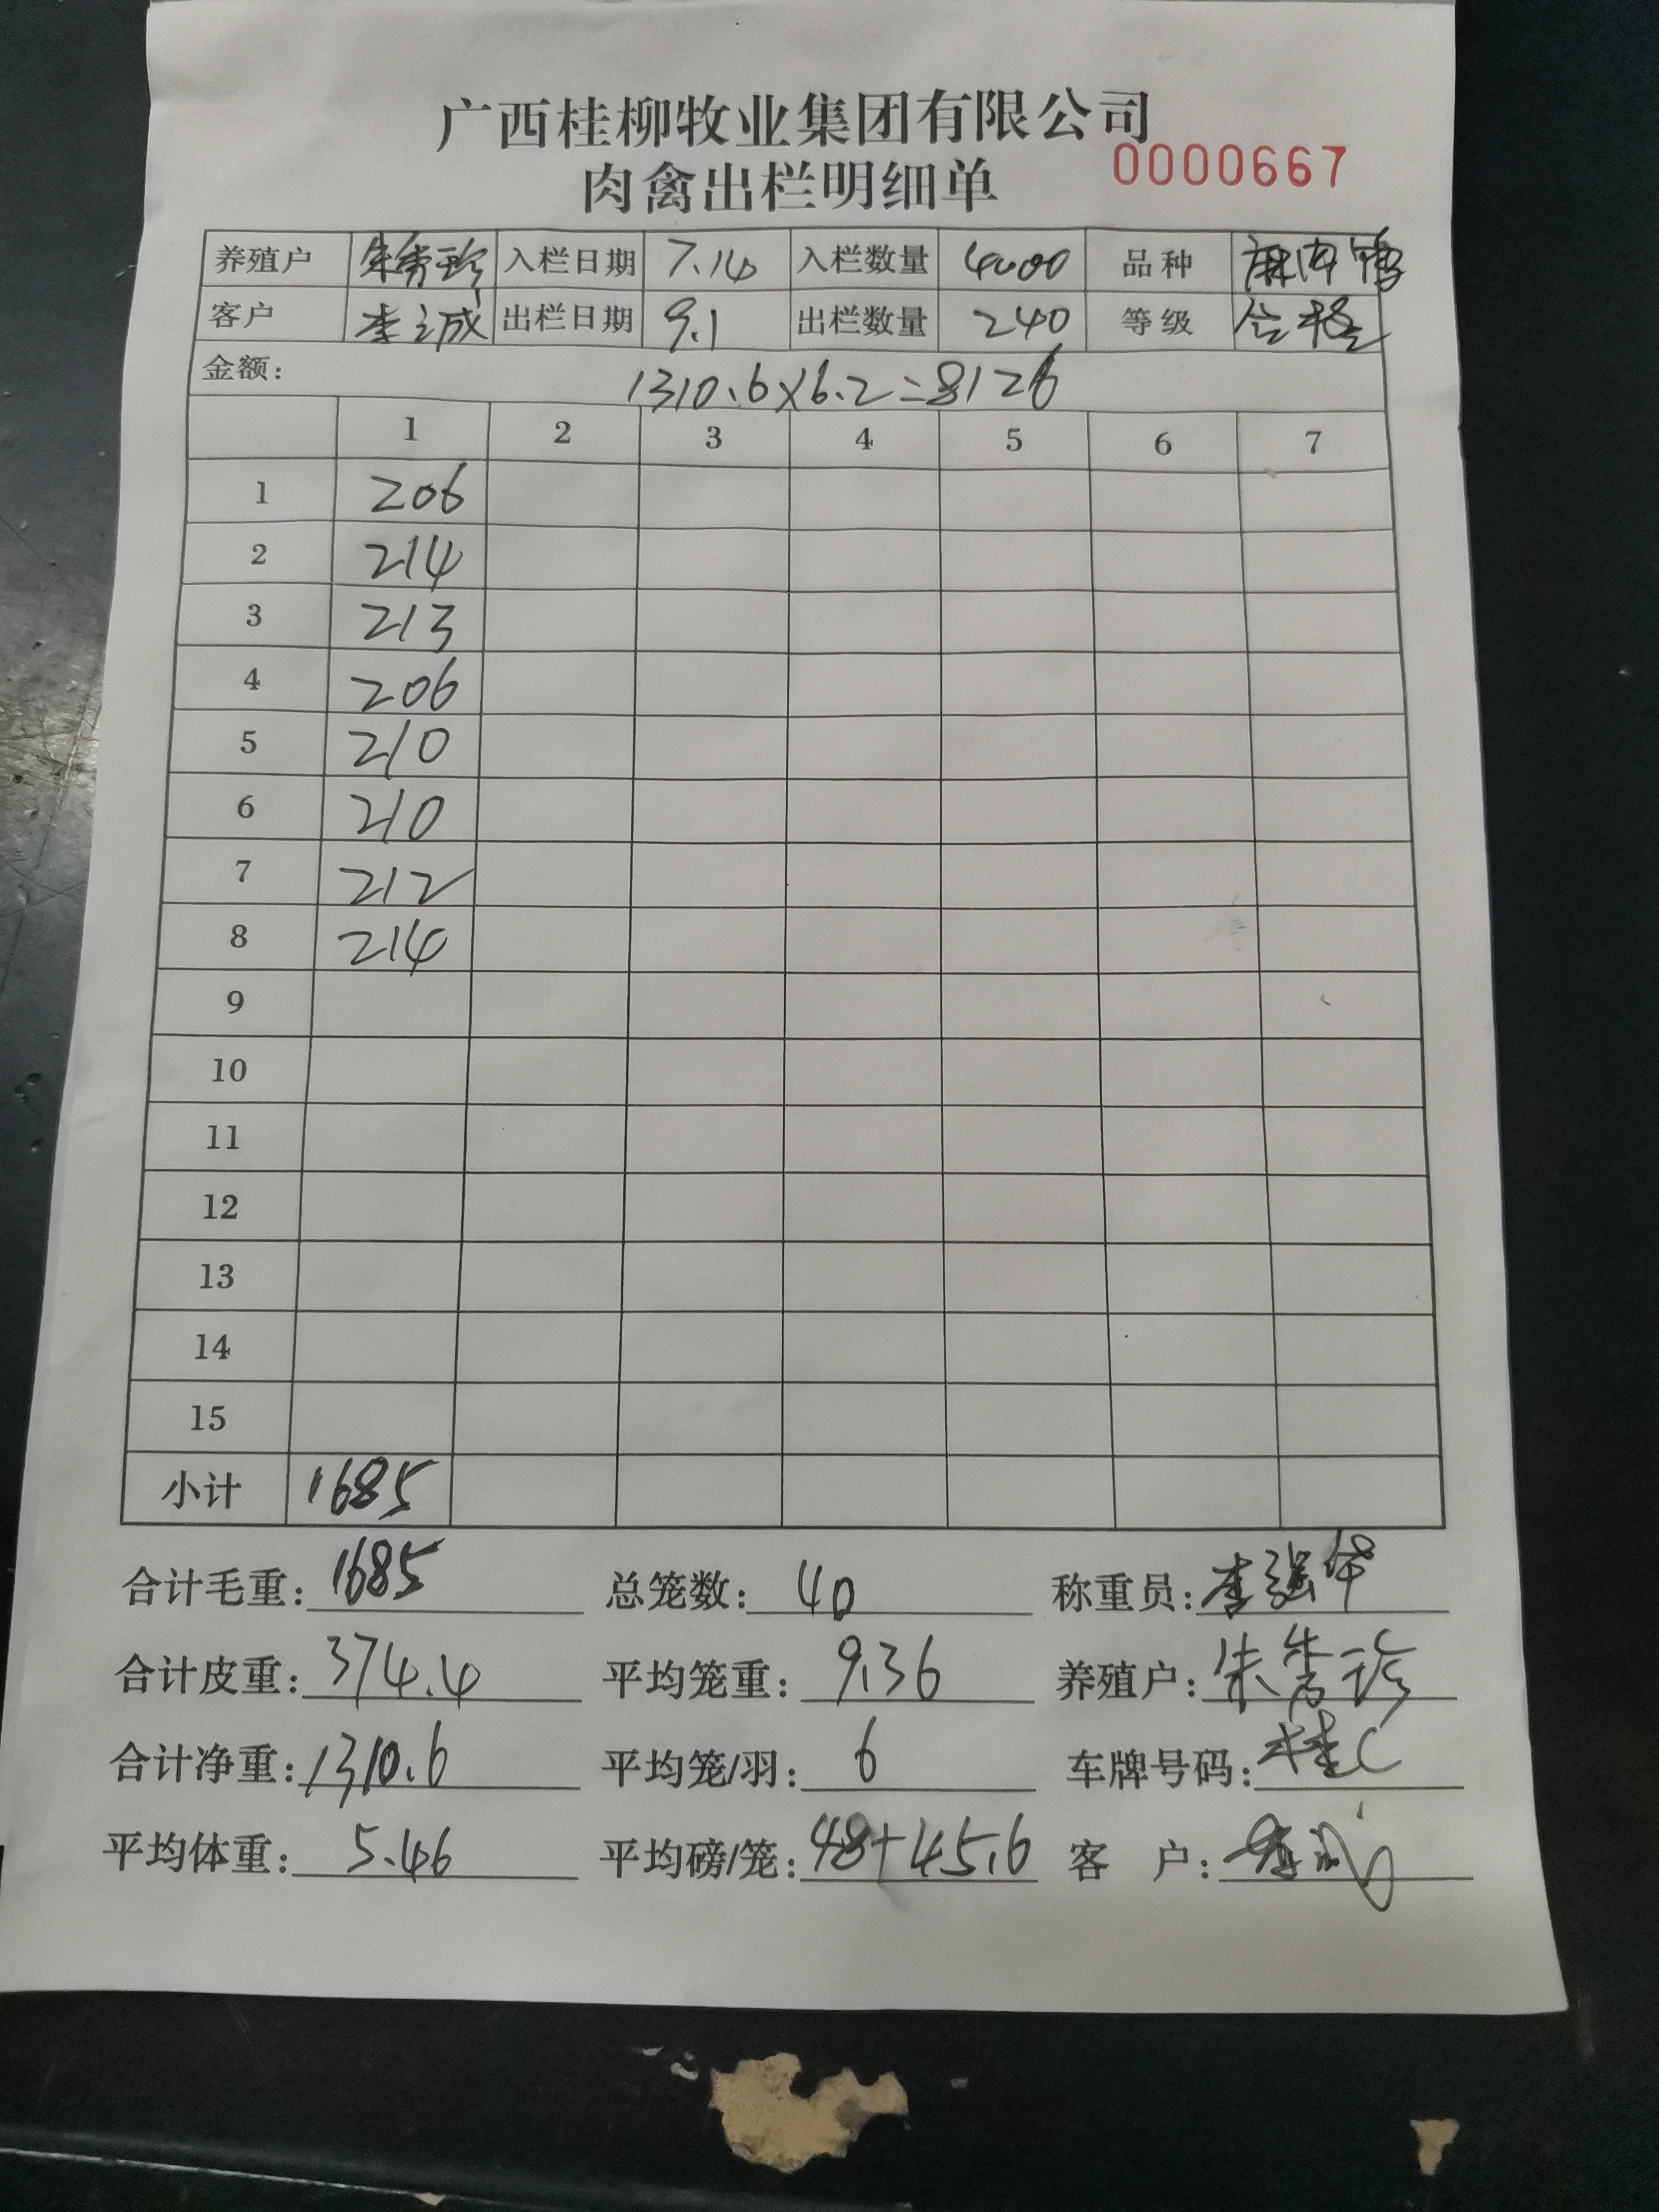 广西桂柳牧业集团有限公司
肉禽出栏明细单 0000667
养殖户 朱秀珍 入栏日期 7.14 入栏数量 4000 品种 麻肉鸭
客户 李诚 出栏日期 9.1 出栏数量 240 等级 合格
金额: 1310.6×6.2=8126
1 2 3 4 5 6 7
1 206
2 214
3 213
4 206
5 210
6 210
7 212
8 214
9
10
11
12
13
14
15
小计 1685
合计毛重: 1685 总笼数: 40 称重员: 李强华
合计皮重: 374.4 平均笼重: 9.36 养殖户: 朱秀珍
合计净重: 1310.6 平均笼/羽: 6 车牌号码: 桂C
平均体重: 5.46 平均磅/笼: 48+45.6 客 户: